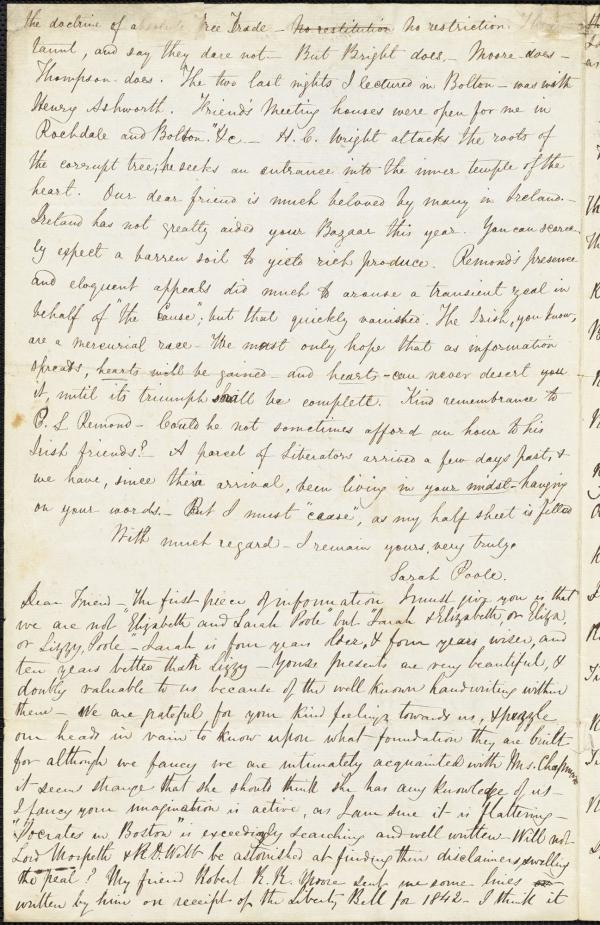 the doctrine of absolute Free Trade – No restitution No restriction.
taunt, and say they dare not – But Bright does, – Moore does –
Thompson does. "The two last nights I lectured in Bolton – was with
Henry Ashworth. Friends Meeting houses were open for me in
Rochdale and Bolton." &c. – H. C. Wright attacks the roots of
the corrupt tree; he seeks an entrance into the inner temple of the
heart. Our dear friend is much beloved by many in Ireland. –
Ireland has not greatly aided your Bazaar this year. You can scarce-
ly expect a barren soil to yield rich produce. Remond's presence
and eloquent appeals did much to arouse a transient zeal in
behalf of "the Cause"; but that quickly vanished. The Irish, you know,
are a mercurial race – We must only hope that as information
spreads, hearts will be gained – and hearts – can never desert you
it, until its triumph shall be complete. Kind remembrance to
C. L Remond – Could he not sometimes afford an hour to his
Irish friends? – A parcel of Liberators arrived a few days past, &
we have, since their arrival, been living in your midst – hanging
on your words. – But I must "cease", as my half sheet is filled
With much regard – I remain yours, very truly,
Sarah Poole.
Dear Friend – The first piece of information I must give you is that
we are not "Elizabeth and Sarah Poole" but "Sarah & Elizabeth, or Eliza,
or Lizzy, Poole" – Sarah is four years older, & four years wiser, and
ten years better than Lizzy – Your presents are very beautiful, &
doubly valuable to us because of the well known handwriting within
them – We are grateful for your kind feelings towards us, & puzzle
our heads in vain to know upon what foundation they are built
for although we fancy we are intimately acquainted with Mrs. Chapman
it seems strange that she should think she has any knowledge of us –
I fancy your imagination is active, as I am sure it is flattering –
"Socrates in Boston" is exceedingly searching and well written – Will not
Lord Morpeth & R. D. Webb be astonished at finding their disclaimers swelling
the peal? My friend Robert R. R. Moore sent me some lines
written by him on receipt of the Liberty Bell for 1842 – I think it